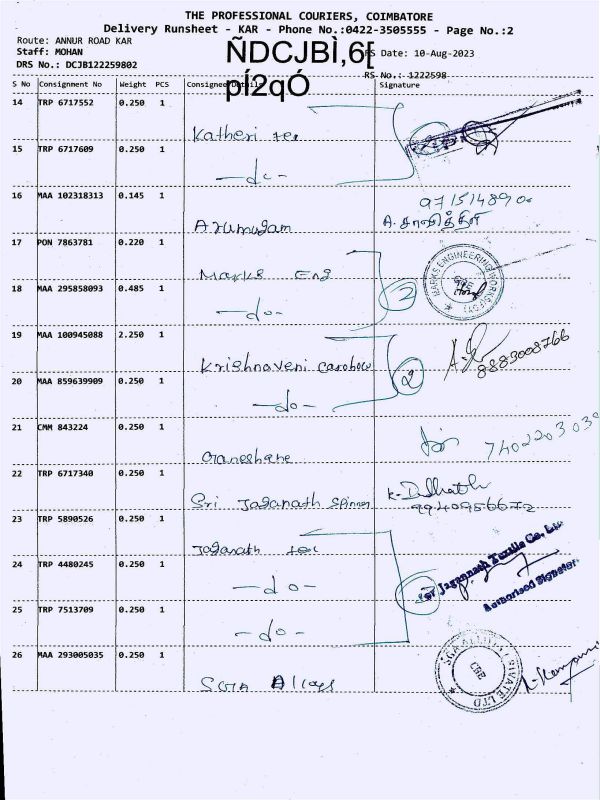 THE PROFESSIONAL COURIERS, COIMBATORE
Delivery Runsheet - KAR - Phone No.:0422-3505555 - Page No.:2
Route: ANNUR ROAD KAR
Staff: MOHAN
ÑDCJBÌ,6[
RS Date: 10-Aug-2023
DRS No.: DCJB122259802
pÍ2qÓ
RS No.: 1222598
S No Consignment No Weight PCS Consignee Details Signature
14 TRP 6717552 0.250 1
Katheri tex
15 TRP 6717609 0.250 1
-do-
16 MAA 102318313 0.145 1
Arumugam
17 PON 7863781 0.220 1
Marks Eng
MARKS ENGINEERING WORKS
CBE
18 MAA 295858093 0.485 1
-do-
2
19 MAA 100945088 2.250 1
Krishnaveni
8883008766
2
20 MAA 859639909 0.250 1
-do-
21 CMM 843224 0.250 1
22 TRP 6717340 0.250 1
Sri Jaganath Spinner
9940956672
23 TRP 5890526 0.250 1
Jaganath tex
24 TRP 4480245 0.250 1
-do-
For Jagannath Textile Co., Ltd
Authorised Signatory
25 TRP 7513709 0.250 1
-do-
26 MAA 293005035 0.250 1
SGA Alloys
SGA ALLOYS PRIVATE LTD
CBE